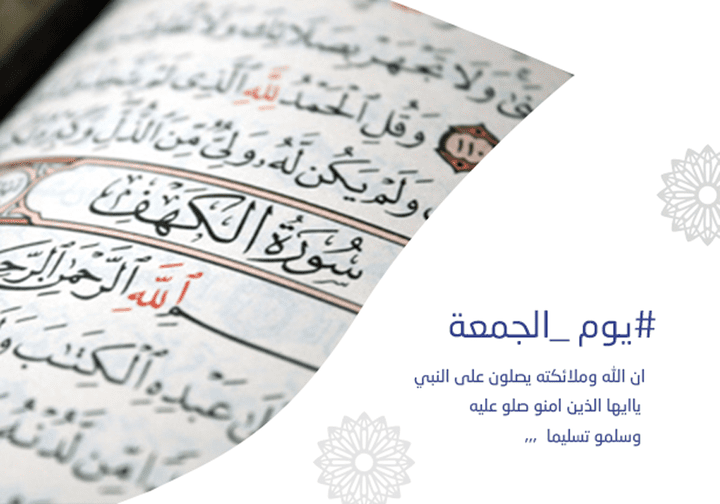 وَلَا تَجْهَرْ بِصَلَاتِكَ وَلَا
وَقُلِ ٱلْحَمْدُ لِلَّهِ ٱلَّذِى لَمْ
١١٠
وَلَمْ يَكُن لَّهُۥ وَلِىٌّ مِّنَ ٱلذُّلِّ وَكَبِّرْهُ
سُورَةُ الكَهْفِ
ٱللَّهِ ٱلرَّحْمَٰنِ ٱلرَّحِ
عَبْدِهِ ٱلْكِتَٰبَ وَ
مِّن لَّدُنْهُ
#يوم _الجمعة
ان الله وملائكته يصلون على النبي
ياايها الذين امنو صلو عليه
وسلمو تسليما ,,,